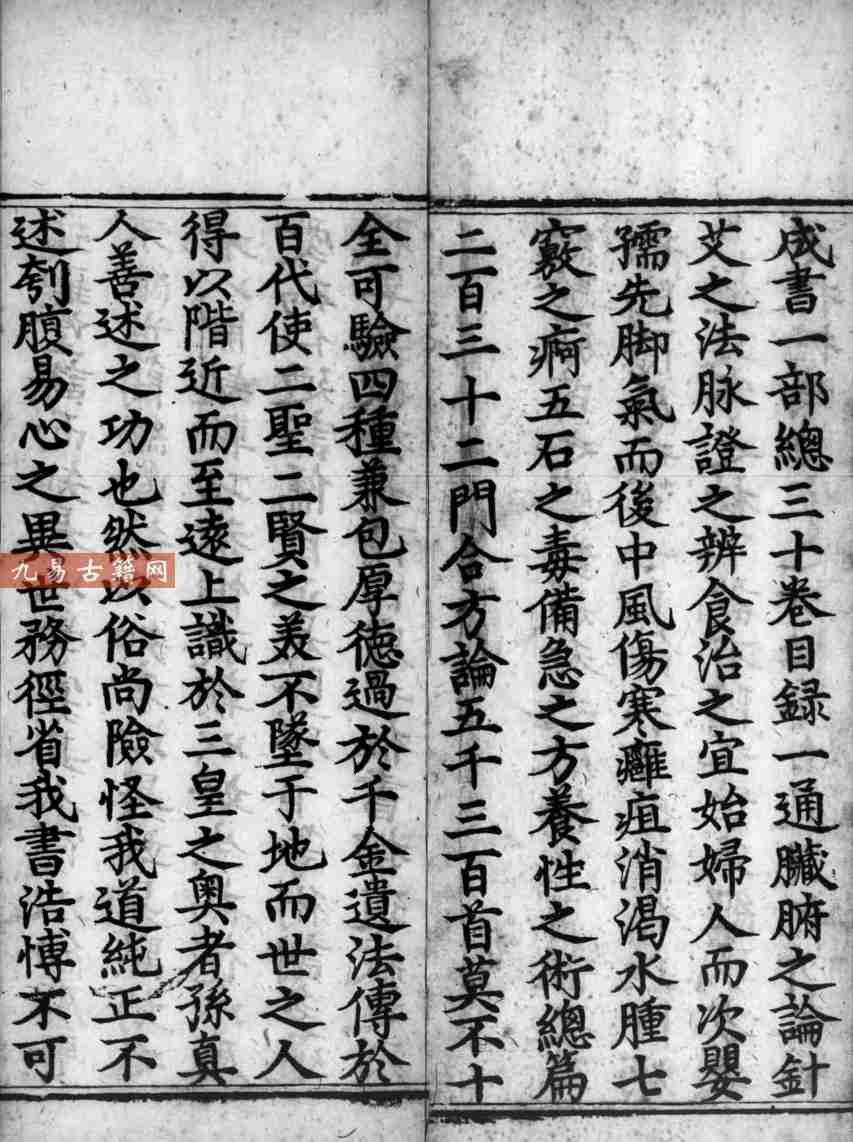 成書一部總三十卷目録一通臟腑之論針
艾之法脉證之辨食治之宜始婦人而次嬰
孺先脚氣而後中風傷寒癰疽消渴水腫七
竅之痾五石之毒備急之方養性之術總篇
二百三十二門合方論五千三百首莫不十
全可驗四種兼包厚德過於千金遺法傳於
百代使二聖二賢之美不墜于地而世之人
得以階近而至遠上識於三皇之奥者孫真
人善述之功也然以俗尚險怪我道純正不
述刳腹易心之異世務徑省我書浩愽不可
九易古籍网